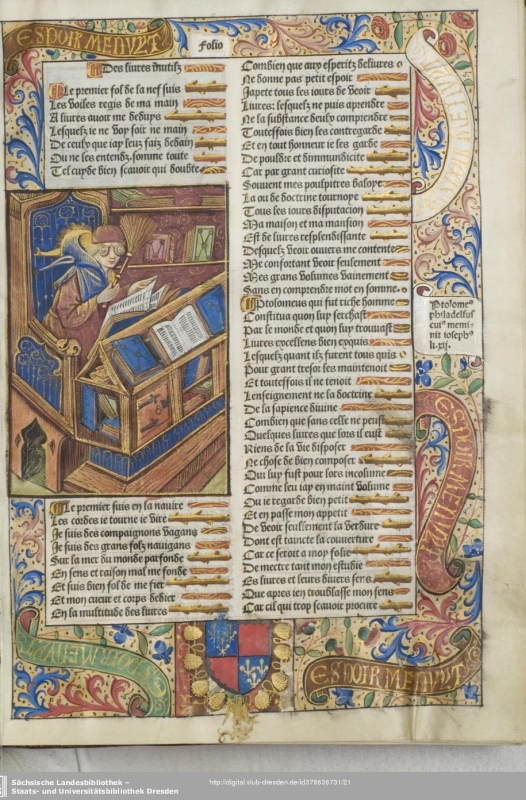 ESPOIR MENVYT
Folio
Des liures inutilz
Le premier fol de la nef suis
Les voiles regis de ma main
A liures auoir me deduys
Lesquelz ie ne voy soir ne main
De ceulx que iay leuz fais dedain
Ou ne les entendz, somme toute
Tel cuyde bien scauoir qui doubte
Le premier suis en la nauire
Les cordes ie tourne et vire
Je suis des compaignons vagans
Je suis des grans folz nauigans
Sur la mer du monde parfonde
En sens et raison mal me fonde
Et suis bien fol de me fier
Et mon cueur et corps dedier
En la multitude des liures
Combien que aux esperitz deliures
Ne donne pas petit espoir
Japete tous les iours de veoir
Liures: lesquelz ne puis aprendre
Ne la substance deulx comprendre
Toutesfois bien les contregarde
Et en tout honneur ie les garde
De pouldre et dimmundicite
Car par grant curiosite
Souuent mes poulpitres baloye
La ou de doctrine tournoye
Tous les iours disputacion
Ma maison et ma mansion
Est de liures resplendissante
Desquelz veoir ouuers me contente
Me confortant veoir seulement
Mes grans volumes vainement
Sans en comprendre mot en somme.
Ptolomeus qui fut riche homme
Constitua quon luy serchast
Par le monde et quon luy trouuast
Liures excellens bien exquis
Lesquelz quant ilz furent tous quis
Pour grant tresor les maintenoit
Et toutesfois il ne tenoit
Lenseignement ne la doctrine
De la sapience diuine
Combien que sans celle ne peust
Quelques liures que lors il eust
Riens de la vie disposer
Ne chose de bien composer
Qui luy fust pour lors incolume
Comme leu iay en maint volume
Ou ie regarde bien petit
Et en passe mon appetit
De veoir seullement la verdure
Dont est taincte la couuerture
Car ce seroit a moy folie
De mectre tant mon estudie
Es liures et leurs diuers sens
Que apres ien troublasse mon sens
Car cil qui trop scauoir procure
Ptolomeꝰ
philadelfus
cuiꝰ memi-
nit iosephꝰ
li.xij.
ESPOIR MENVYT
ESPOIR MENVYT
ESPOIR MENVYT
ESPOIR MENVYT
Sächsische Landesbibliothek –
Staats- und Universitätsbibliothek Dresden
http://digital.slub-dresden.de/id378636731/21